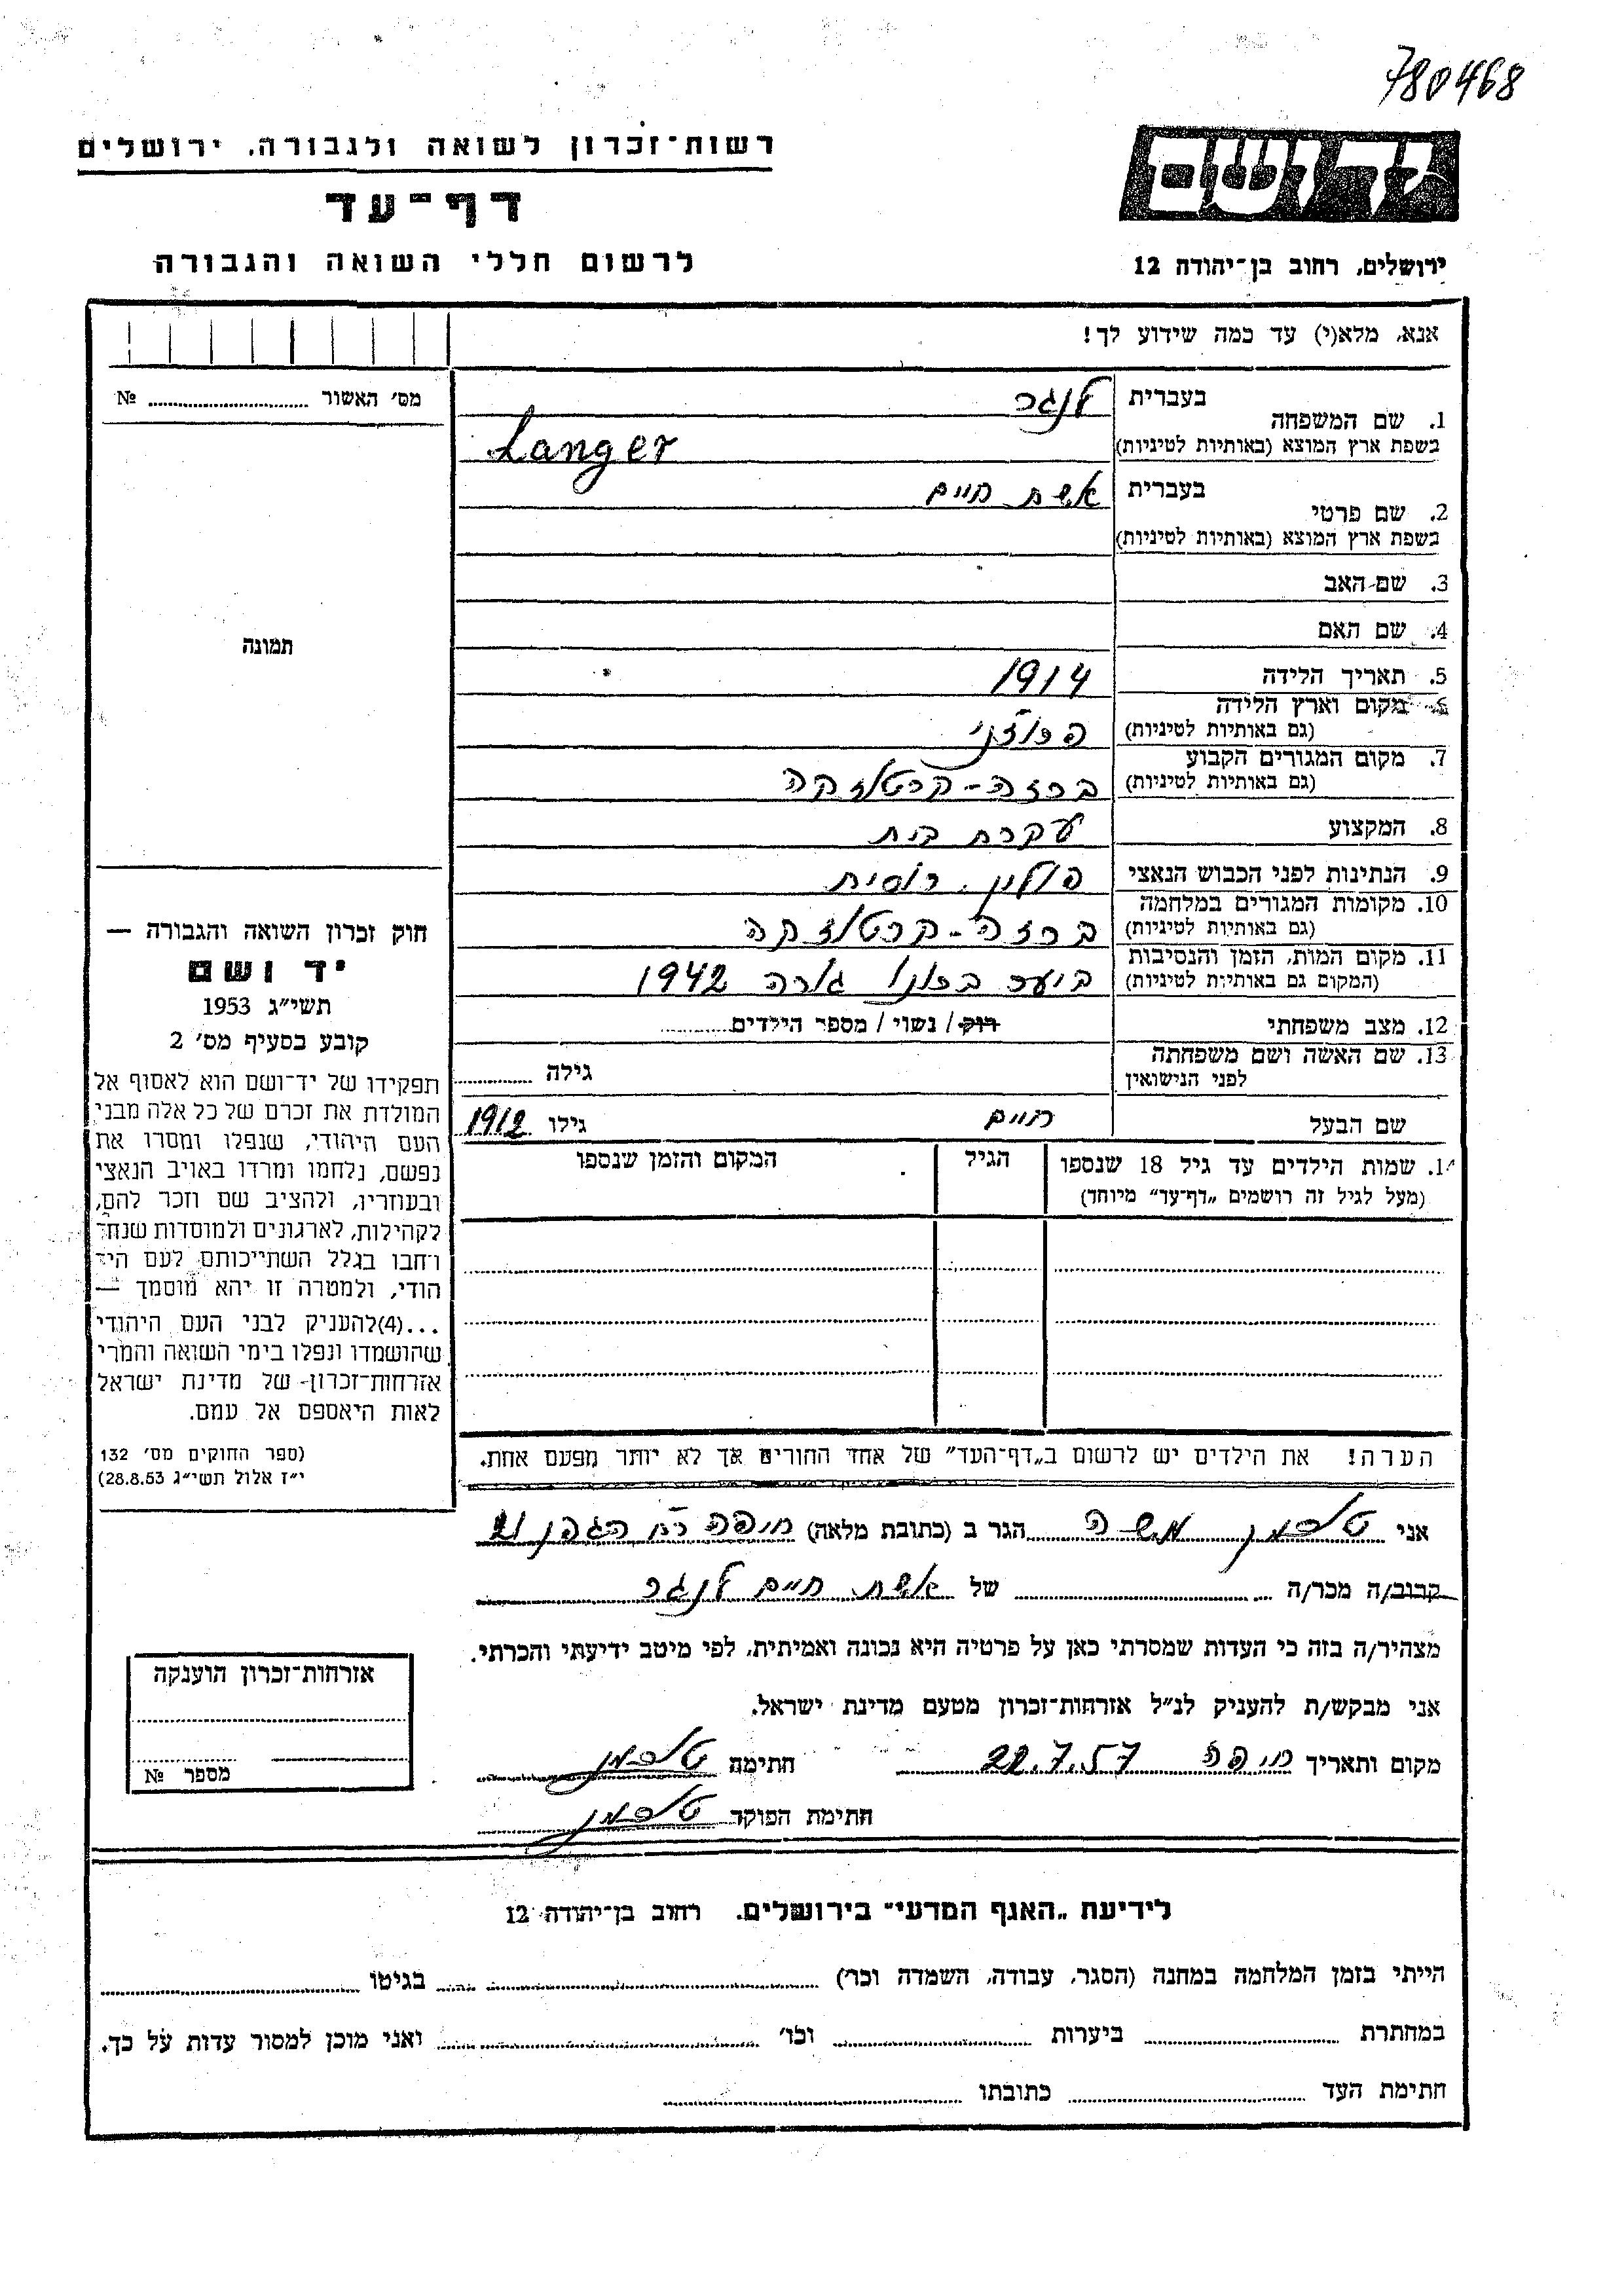 780468
יד ושם
ירושלים, רחוב בן־יהודה 12
רשות־זכרון לשואה ולגבורה, ירושלים
דף־עד
לרשום חללי השואה והגבורה
אנא, מלא(י) עד כמה שידוע לך!
מס׳ האשור № ..........
1. שם המשפחה
בעברית לנגר
בשפת ארץ המוצא (באותיות לטיניות) Langer
2. שם פרטי
בעברית אשת חיים
בשפת ארץ המוצא (באותיות לטיניות)
3. שם האב
4. שם האם
5. תאריך הלידה 1914
6. מקום וארץ הלידה
(גם באותיות לטיניות)
7. מקום המגורים הקבוע
(גם באותיות לטיניות) ברזה-קרטוזקה
8. המקצוע עקרת בית
9. הנתינות לפני הכבוש הנאצי פולין. רוסית
10. מקומות המגורים במלחמה
(גם באותיות לטיניות) ברזה-קרטוזקה
11. מקום המות, הזמן והנסיבות
(המקום גם באותיות לטיניות) ביער ברונו גורה 1942
12. מצב משפחתי רוק / נשוי / מספר הילדים..........
13. שם האשה ושם משפחתה
לפני הנישואין גילה ..........
שם הבעל חיים גילו 1912
14. שמות הילדים עד גיל 18 שנספו
(מעל לגיל זה רושמים „דף־עד״ מיוחד)
הגיל
המקום והזמן שנספו
הערה! את הילדים יש לרשום ב„דף־העד״ של אחד ההורים אך לא יותר מפעם אחת.
תמונה
חוק זכרון השואה והגבורה —
יד ושם
תשי״ג 1953
קובע בסעיף מס׳ 2
תפקידו של יד־ושם הוא לאסוף אל
המולדת את זכרם של כל אלה מבני
העם היהודי, שנפלו ומסרו את
נפשם, נלחמו ומרדו באויב הנאצי
ובעוזריו, ולהציב שם וזכר להם,
לקהילות, לארגונים ולמוסדות שנח־
רבו בגלל השתייכותם לעם הי־
הודי, ולמטרה זו יהא מוסמך —
...(4) להעניק לבני העם היהודי
שהושמדו ונפלו בימי השואה והמרי
אזרחות־זכרון של מדינת ישראל
לאות היאספם אל עמם.
(ספר החוקים מס׳ 132
י״ז אלול תשי״ג 28.8.53)
אני טוכמן משה הגר ב (כתובת מלאה) חיפה רח הגפן 21
קרוב/ה מכר/ה .......... של אשת חיים לנגר
מצהיר/ה בזה כי העדות שמסרתי כאן על פרטיה היא נכונה ואמיתית, לפי מיטב ידיעתי והכרתי.
אני מבקש/ת להעניק לנ״ל אזרחות־זכרון מטעם מדינת ישראל.
מקום ותאריך חיפה 22.7.57 חתימה טוכמן
חתימת הפוקד טוכמן
אזרחות־זכרון הוענקה
מספר №
לידיעת „האגף המדעי״ בירושלים, רחוב בן־יהודה 12
הייתי בזמן המלחמה במחנה (הסגר, עבודה, השמדה וכו׳) .......... בגיטו ..........
במחתרת .......... ביערות .......... וכו׳ .......... ואני מוכן למסור עדות על כך.
חתימת העד .......... כתובתו ..........